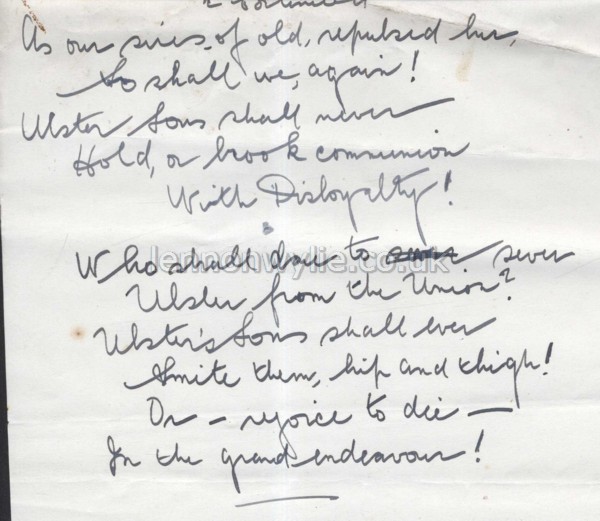 As our sires of old, repulsed her,
So shall we, again!
Ulster Sons shall never
Hold, or brook communion
With Disloyalty!
3
Who shall dare to sever
Ulster from the Union?
Ulster's Sons shall ever
Smite them, hip and thigh!
Or - rejoice to die -
In the grand endeavour!
lennonwylie.co.uk